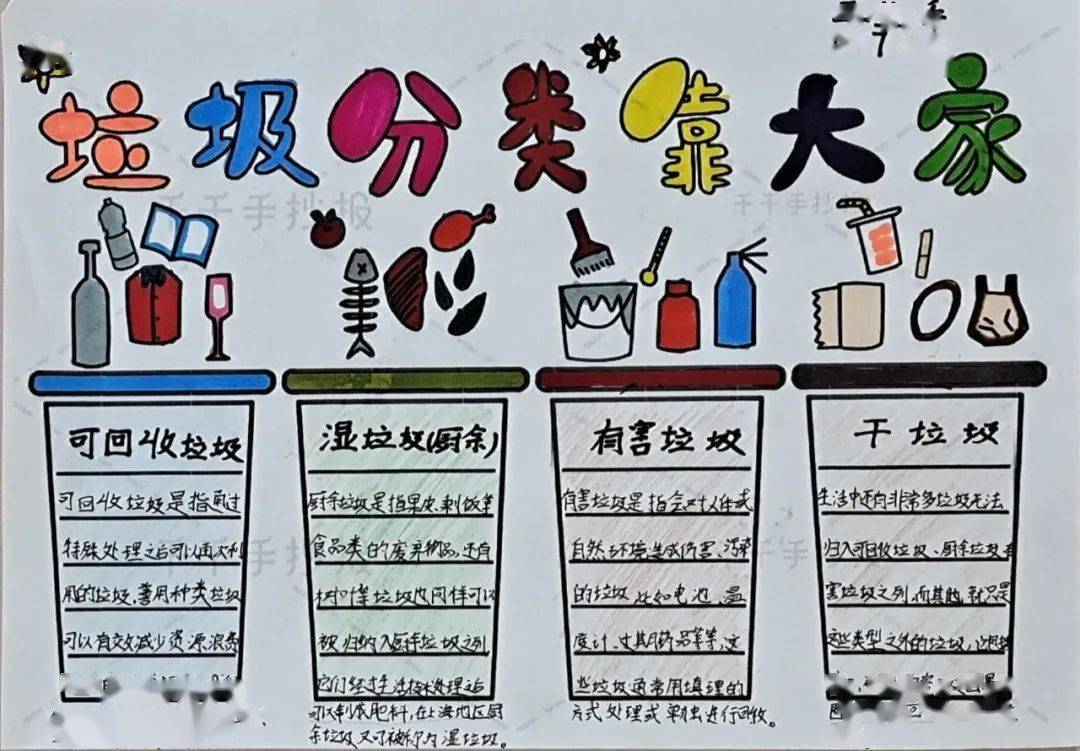 垃圾分类靠大家
千千手抄报
千千手抄
可回收垃圾
可回收垃圾是指通过
特殊处理之后可以再次利
用的垃圾,善用种类垃圾
可以有效减少资源浪费
湿垃圾(厨余)
厨余垃圾是指果皮、剩饭等
食品类的废弃物品,还有
树叶等垃圾也同样可以
被归纳入厨余垃圾之列
它们经过生活技术处理之后
可以制成肥料,在上海地区厨
余垃圾又可被称为湿垃圾。
有害垃圾
有害垃圾是指会对人体或
自然环境造成伤害、污染
的垃圾 比如电池、温
度计、过期药品等等,这
些垃圾通常用填埋的
方式处理或单独进行回收。
干垃圾
生活中还有非常多垃圾无法
归入可回收垃圾、厨余垃圾、有
害垃圾之列,而其他 就只是
这些类型之外的垃圾,